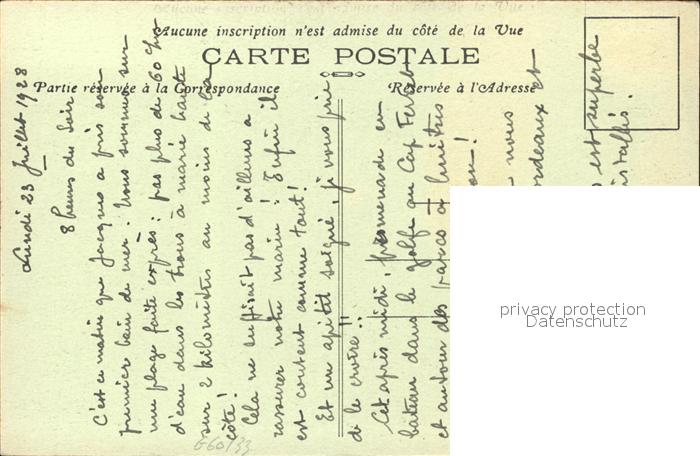 Aucune inscription n'est admise du côté de la Vue
CARTE POSTALE
Partie réservée à la Correspondance
Réservée à l'Adresse
Lundi 23 Juillet 1928
8 heures du soir
C'est ce matin que Jacques a pris son
premier bain de mer. Nous sommes sur
une plage faite exprès : pas plus de 60 cm
d'eau dans les trous à marée haute
sur 2 kilomètres au moins de la
côte !
Cela ne suffisait pas d'ailleurs a
rassurer notre marin ! Enfin il
est content comme tout !
Et un apétit soigné, je vous prie
de le croire !!
Cet après midi, promenade en
bateau dans le golfe au Cap Ferret
et autour des parcs à huîtres
nous
Bordeaux et
est superbe
installés.
G60/33
privacy protection
Datenschutz